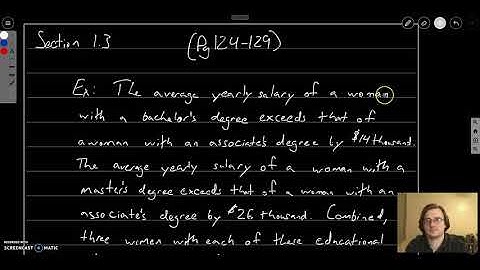 Section 1.3 (Pg 124-129)
Ex: The average yearly salary of a woman
with a bachelor's degree exceeds that of
a woman with an associate's degree by $14 thousand.
The average yearly salary of a woman with a
master's degree exceeds that of a woman with an
associate's degree by $26 thousand. Combined,
three women with each of these educational
RECORDED WITH
SCREENCAST MATIC